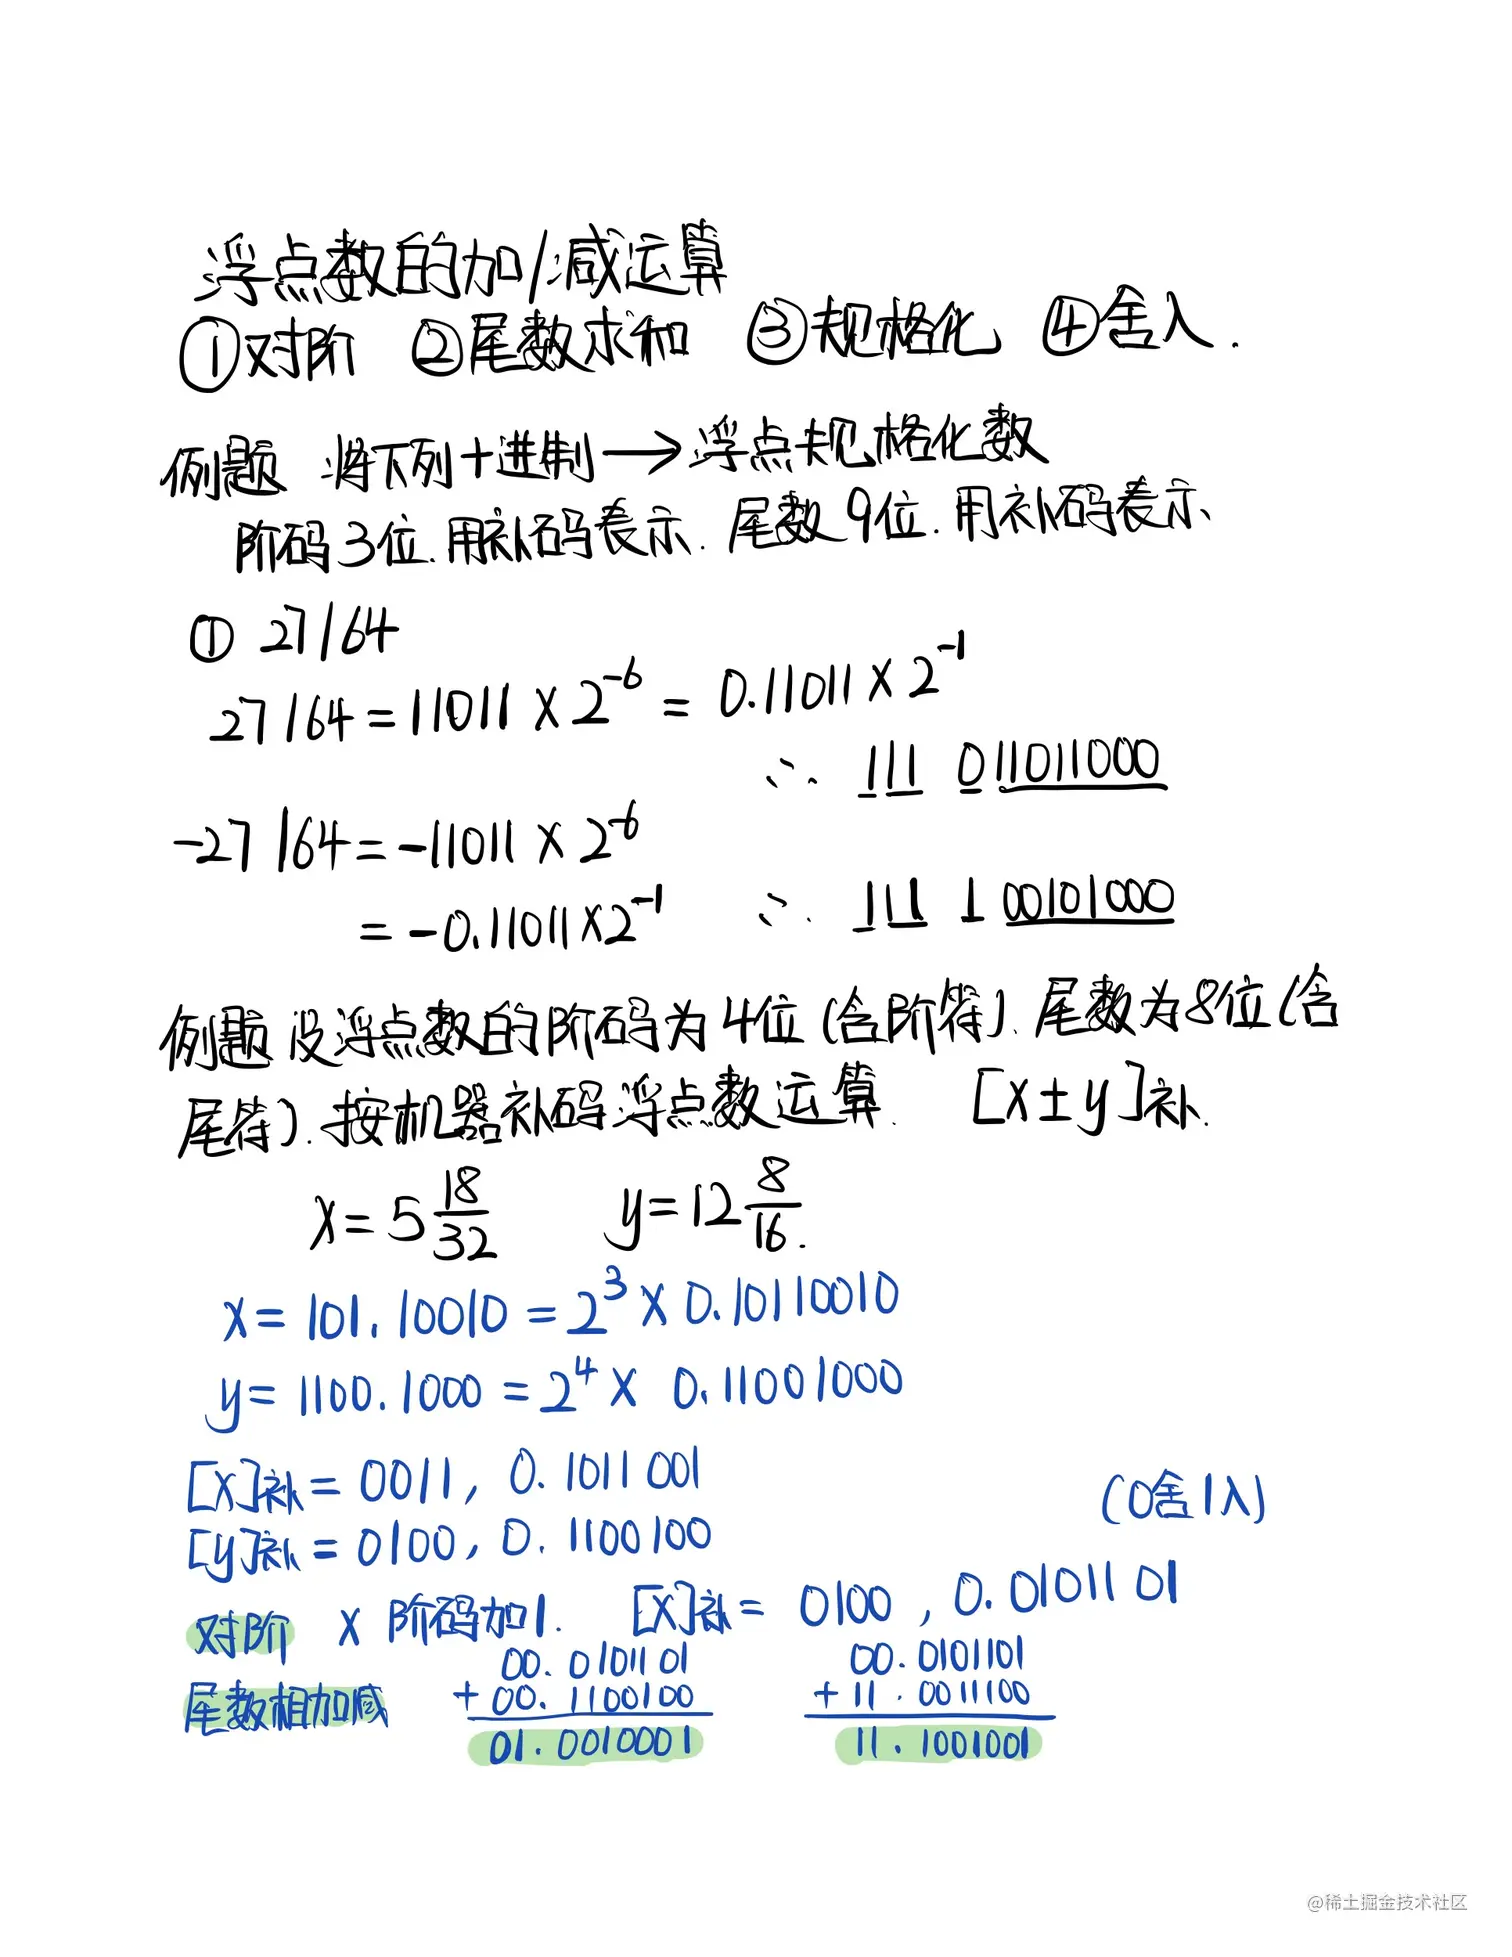 浮点数的加/减运算
①对阶 ②尾数求和 ③规格化 ④舍入.
例题 将下列十进制→浮点规格化数
阶码3位.用补码表示. 尾数9位.用补码表示、
① 27/64
27/64=11011×2^-6 = 0.11011×2^-1
∴ 111 011011000
-27/64=-11011×2^-6
=-0.11011×2^-1 ∴ 111 1 00101000
例题 设浮点数的阶码为4位(含阶符). 尾数为8位(含
尾符).按机器补码浮点数运算. [x±y]补.
x=5 18/32 y=12 8/16.
x=101.10010=2^3×0.10110010
y=1100.1000=2^4× 0.11001000
[x]补=0011, 0.1011001 (0舍1入)
[y]补=0100, 0.1100100
对阶 x 阶码加1. [x]补= 0100, 0.0101101
尾数相加减 00.0101101 00.0101101
+00.1100100 +11.0011100
01.0010001 11.1001001
@稀土掘金技术社区